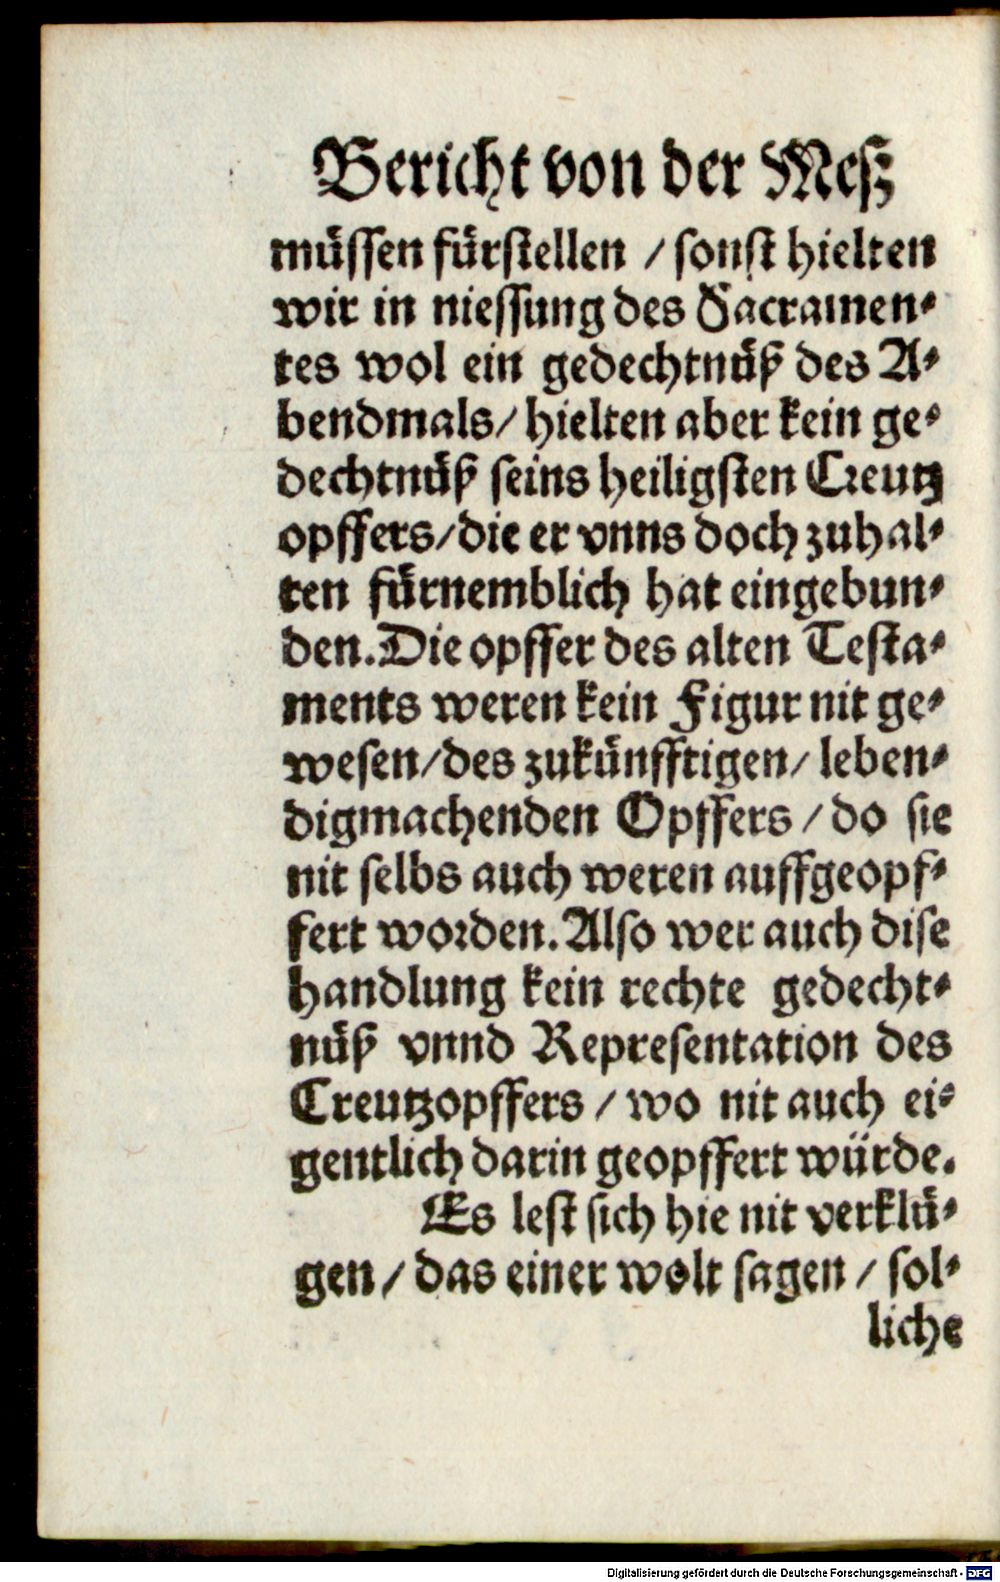 Bericht von der Meß
müssen fürstellen / sonst hielten
wir in niessung des Sacramen-
tes wol ein gedechtnüß des A-
bendmals/ hielten aber kein ge-
dechtnüß seins heiligsten Creutz
opffers/die er vnns doch zuhal-
ten fürnemblich hat eingebun-
den. Die opffer des alten Testa-
ments weren kein Figur nit ge-
wesen/des zukünfftigen/ leben-
digmachenden Opffers / do sie
nit selbs auch weren auffgeopf-
fert worden. Also wer auch dise
handlung kein rechte gedecht-
nüß vnnd Representation des
Creutzopffers / wo nit auch ei-
gentlich darin geopffert würde.
Es lest sich hie nit verklü-
gen / das einer wolt sagen / sol-
liche
Digitalisierung gefördert durch die Deutsche Forschungsgemeinschaft - DFG